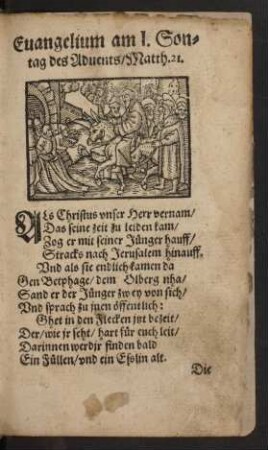 Euangelium am I. Son-
tag des Aduents/Matth.21.
ALs Christus vnser Herr vernam/
Das seine zeit zu leiden kam/
Zog er mit seiner Jünger hauff/
Stracks nach Jerusalem hinauff.
Vnd als sie endlich kamen da
Gen Betphage/ dem Olberg nha/
Sand er der Jünger zwey von sich/
Vnd sprach zu jnen öffentlich:
Ghet in den Flecken jtzt bezeit/
Der/wie jr seht/ hart für euch leit/
Darinnen werdjr finden bald
Ein Füllen/ vnd ein Eslin alt.
Die